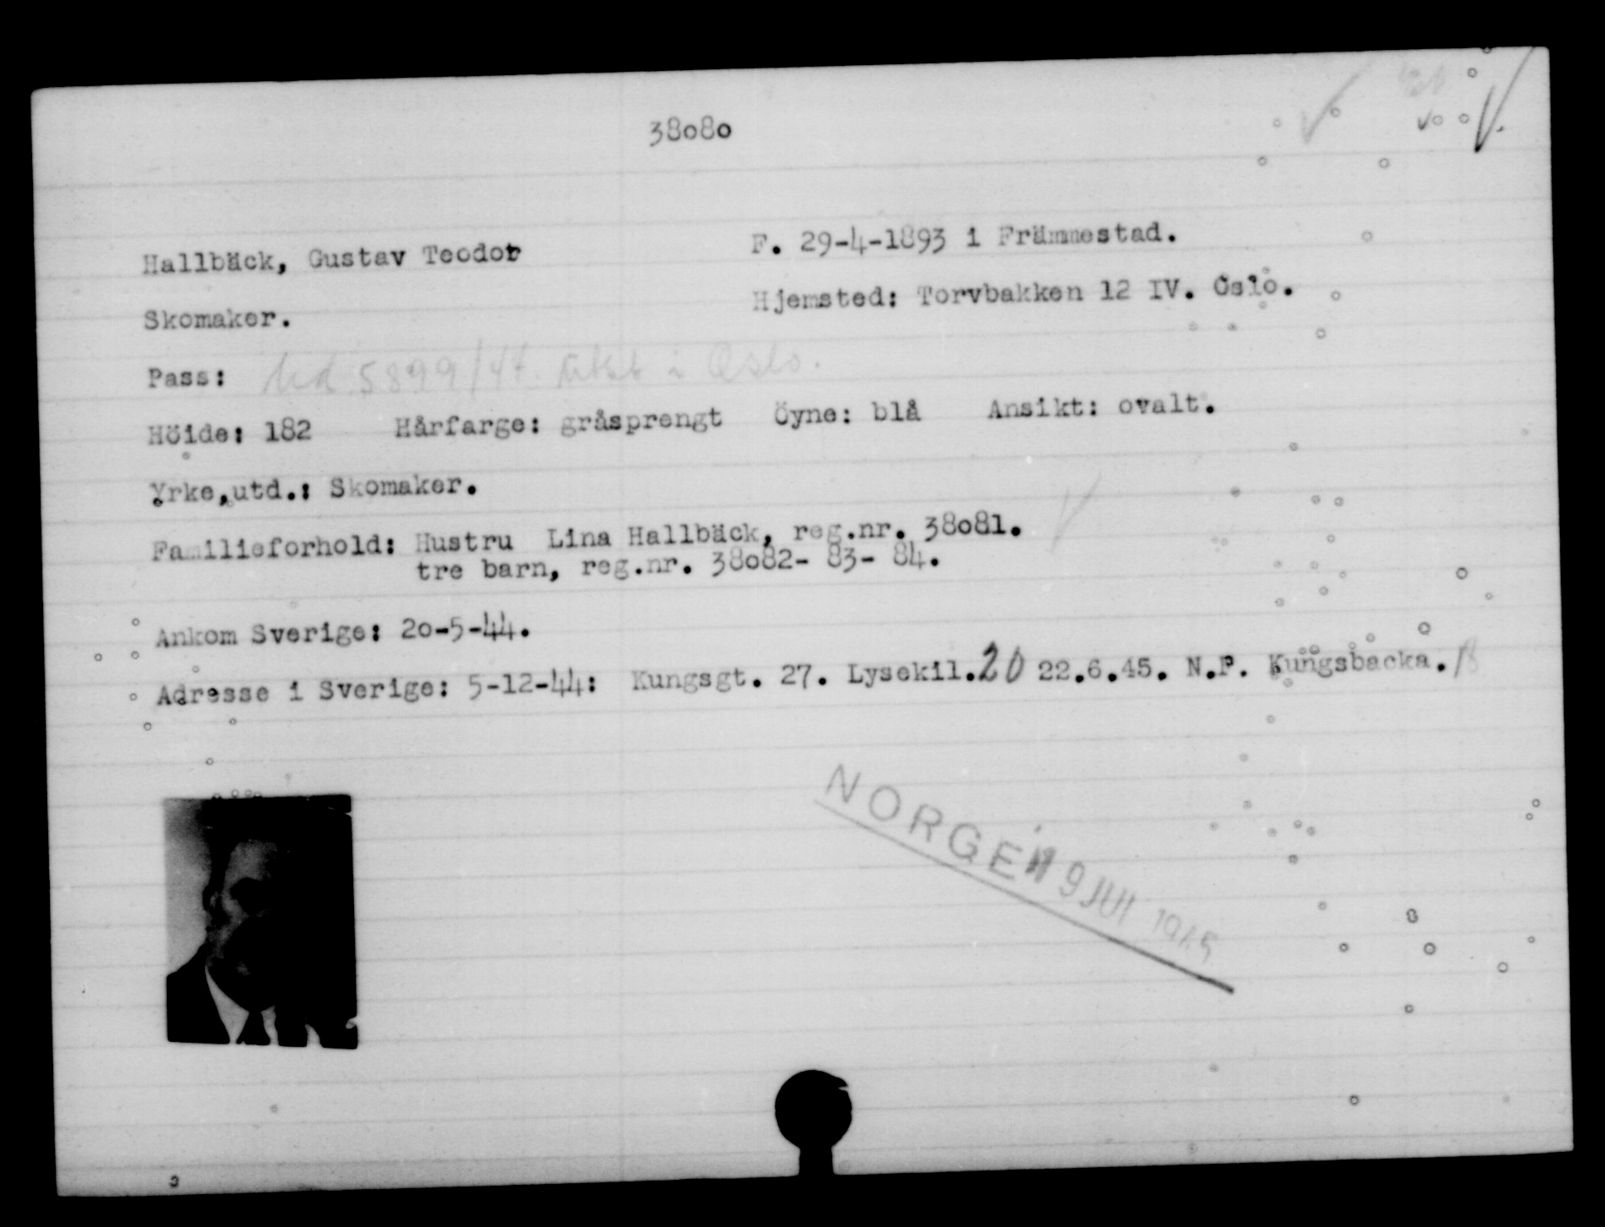 38080
Hallbäck, Gustav Teodor
F. 29-4-1893 i Främmestad.
Skomaker.
Hjemsted: Torvbakken 12 IV. Oslo.
Pass: 5899/44. utst i Oslo.
Höide: 182 Hårfarge: gråsprengt Öyne: blå Ansikt: ovalt.
Yrke,utd.: Skomaker.
Familieforhold: Hustru Lina Hallbäck, reg.nr. 38081.
tre barn, reg.nr. 38082- 83- 84.
Ankom Sverige: 20-5-44.
Adresse i Sverige: 5-12-44: Kungsgt. 27. Lysekil. 20 22.6.45. N.P. Kungsbacka.
NORGE 9 JUL 1945